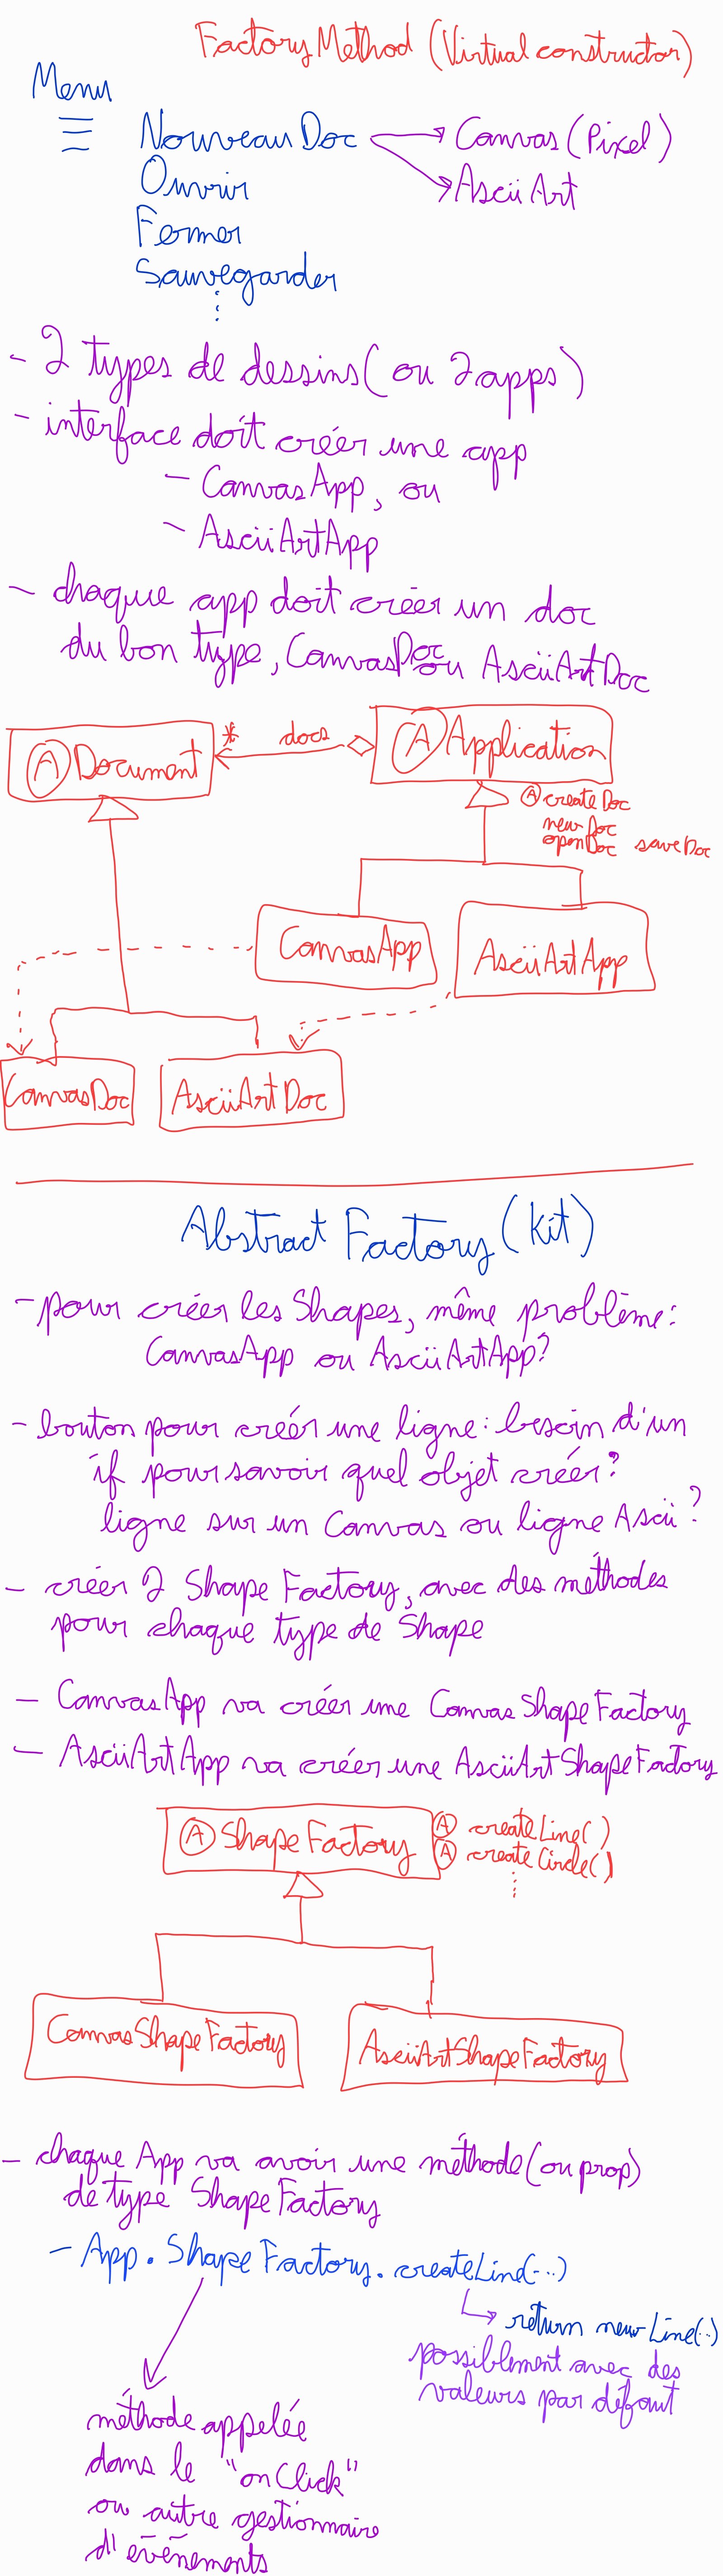 Factory Method (Virtual constructor)
Menu
Nouveau Doc → Canvas (Pixel)
Ouvrir → Ascii Art
Fermer
Sauvegarder
⋮
- 2 types de dessins (ou 2 apps)
- interface doit créer une app
- CanvasApp, ou
- AsciiArtApp
- chaque app doit créer un doc
du bon type, CanvasDoc ou AsciiArtDoc
Ⓐ Document
* docs
Ⓐ Application
Ⓐ createDoc
newDoc
openDoc saveDoc
CanvasApp
AsciiArtApp
CanvasDoc
AsciiArtDoc
Abstract Factory (Kit)
- pour créer les Shapes, même problème:
CanvasApp ou AsciiArtApp?
- bouton pour créer une ligne: besoin d'un
if pour savoir quel objet créer?
ligne sur un Canvas ou ligne Ascii?
- créer 2 Shape Factory, avec des méthodes
pour chaque type de Shape
- CanvasApp va créer une CanvasShapeFactory
- AsciiArtApp va créer une AsciiArtShapeFactory
Ⓐ ShapeFactory
Ⓐ createLine()
Ⓐ createCircle()
⋮
CanvasShapeFactory
AsciiArtShapeFactory
- chaque App va avoir une méthode (ou prop)
de type ShapeFactory
- App.ShapeFactory.createLine(...)
↳ return new Line(..)
possiblement avec des
valeurs par défaut
méthode appelée
dans le "onClick"
ou autre gestionnaire
d'évènements